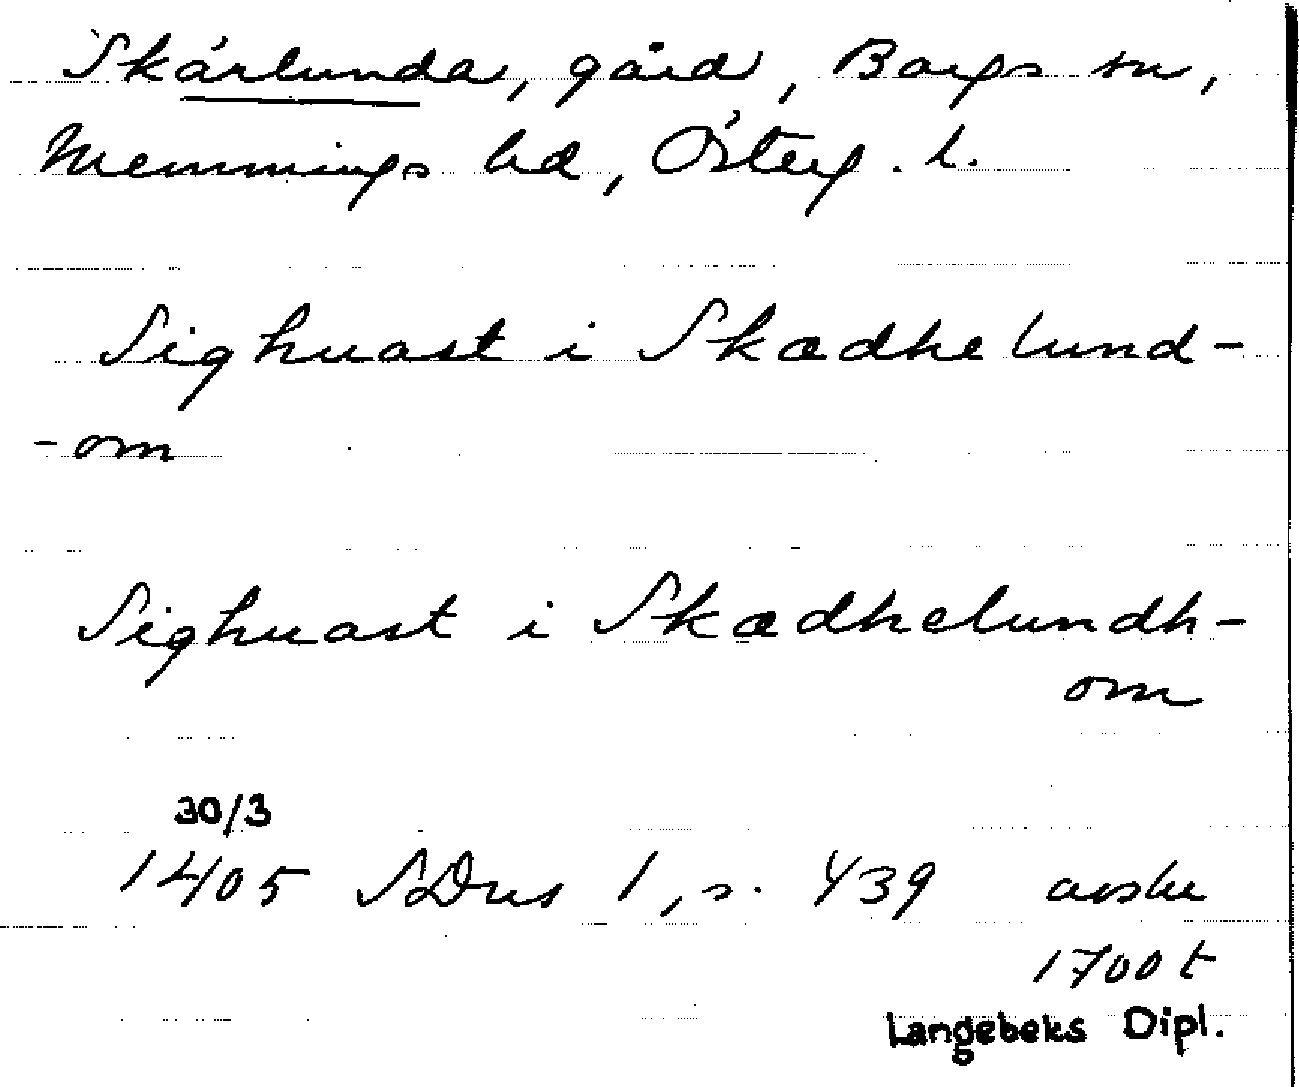 Skärlunda, gård, Borgs sn,
Memmings hd, Österg. l.
Sighuast i Skædhelund-
-om
Sighuast i Skædhelundh-
om
30/3
1405 SDns 1, s. 439 avskr
1700 t
Langebeks Dipl.